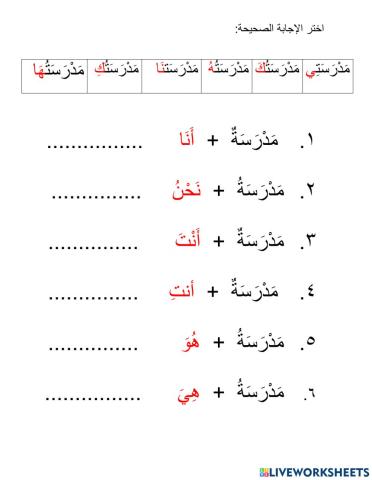 اختر الإجابة الصحيحة:
مَدْرَسَتِي مَدْرَسَتُكَ مَدْرَسَتُهُ مَدْرَسَتنَا مَدْرَسَتُكِ مَدْرَسَتُهَا
١. مَدْرَسَةٌ + أَنَا ................
٢. مَدْرَسَةُ + نَحْنُ ...............
٣. مَدْرَسَةٌ + أَنْتَ ...............
٤. مَدْرَسَةٌ + أنتِ ...............
٥. مَدْرَسَةُ + هُوَ ...............
٦. مَدْرَسَةُ + هِيَ ................
LIVEWORKSHEETS